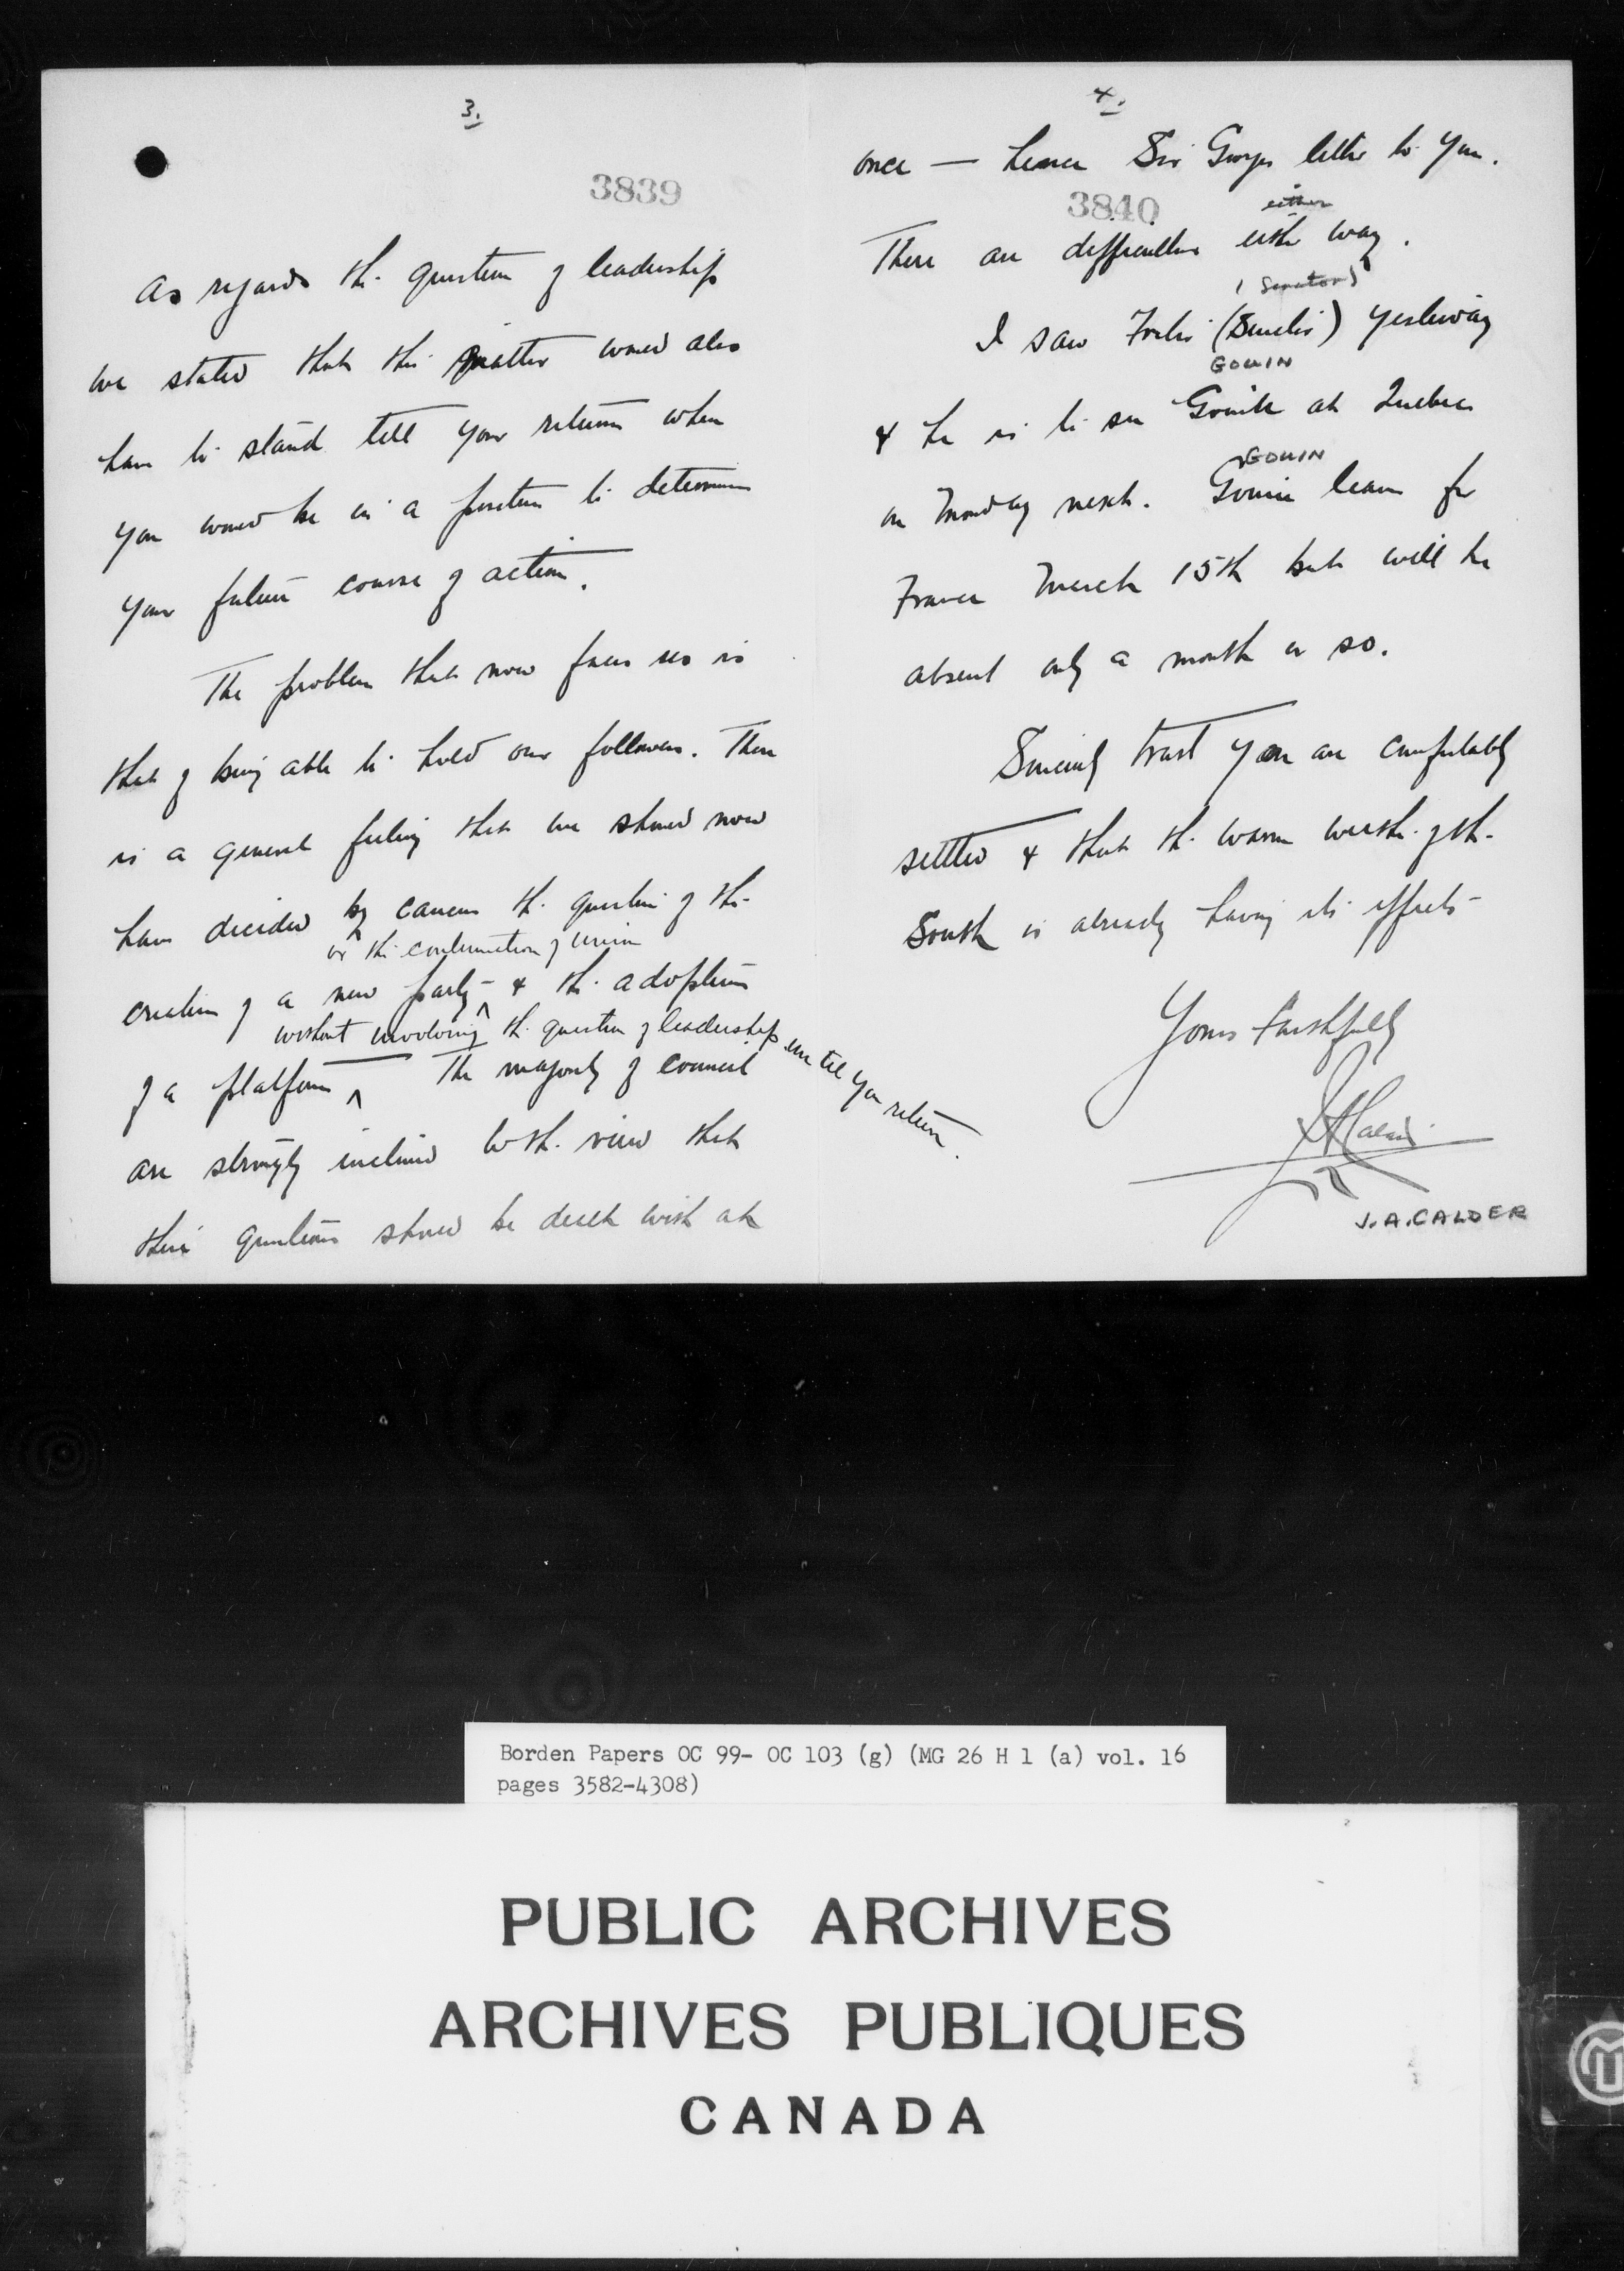 3.
3839
As regards the question of leadership
we stated that this matter would also
have to stand till your return when
you would be in a position to determine
your future course of action.
The problem that now faces us is
that of being able to hold our followers. There
is a general feeling that we should now
have decided by caucus the question of the
or the continuation of union
creation of a new party - & the adoption
without involving the question of leadership until you return.
of a platform. The majority of council
are strongly inclined to the view that
these questions should be dealt with at
4.
once — hence Sir Georges letter to you.
3840
either
There are difficulties either way.
(Senator)
I saw (Senator) yesterday
GOUIN
& he is to see Gouin at Quebec
GOUIN
on Monday next. Gouin leaves for
France March 15th but will be
absent only a month or so.
Sincerely trust you are comfortably
settled & that the warm weather of the
South is already having its effects -
Yours faithfully
J A Calder
J. A. CALDER
Borden Papers OC 99- OC 103 (g) (MG 26 H 1 (a) vol. 16
pages 3582-4308)
PUBLIC ARCHIVES
ARCHIVES PUBLIQUES
CANADA